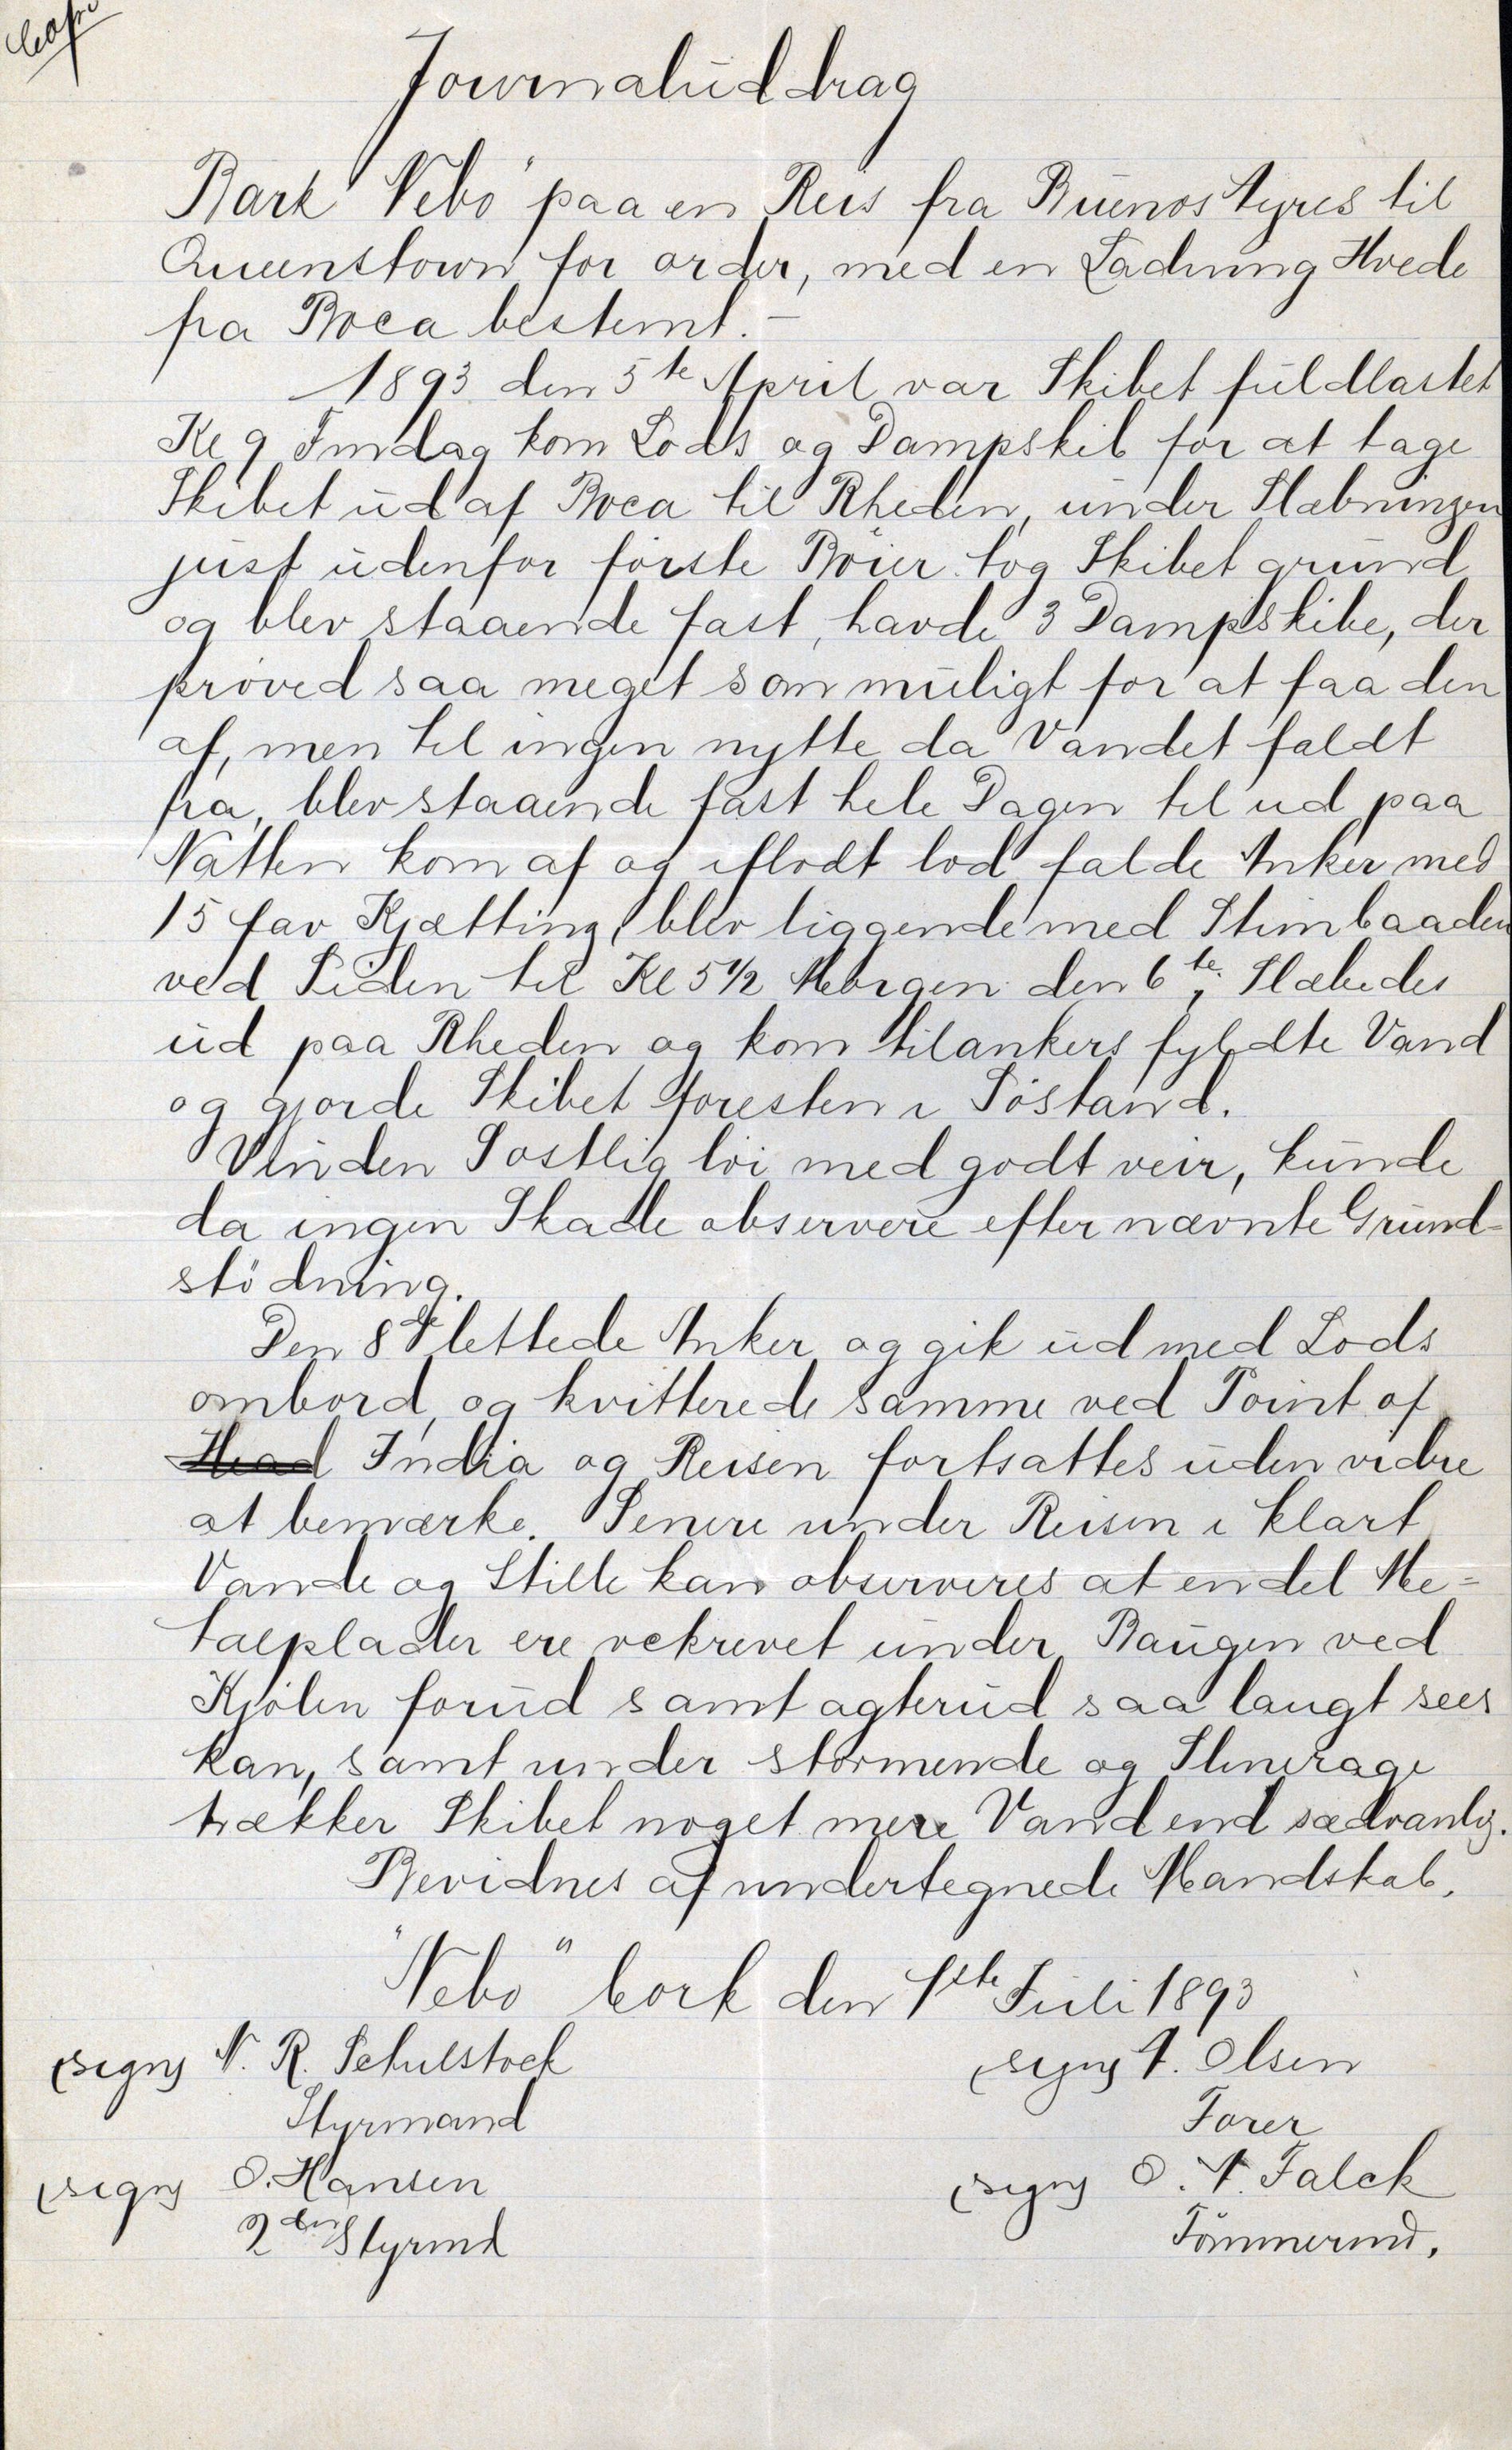 Copi
Journaluddrag
Bark "Nebo" paa en Reis fra Buenos Ayres til
Queenstown for order, med en Ladning Hvede
fra Boca bestemt.-
1893 den 5te April var Skibet fuldlastet
Kl 9 Fmdag kom Lods og Dampskib for at tage
Skibet ud af Boca til Rheden, under Slæbningen
just udenfor förste Böier tog Skibet grund
og blev staaende fast, havde 3 Dampskibe, der
pröved saa meget som muligt for at faa den
af, men til ingen nytte da Vandet faldt
fra, blev staaende fast hele Dagen til ud paa
Natten kom af og iflodt lod falde Anker med
15 fav Kjætting, blev liggende med Stimbaaden
ved Siden til Kl 5 1/2 Morgen den 6te, Slæbedes
ud paa Rheden og kom tilankers fyldte Vand
og gjorde Skibet foresten i Söstand.
Vinden Sostlig löi med godt veir, kunde
da ingen Skade observere efter nævnte Grund-
stödning.
Den 8de lettede Anker og gik ud med Lods
ombord, og kvitterede samme ved Point of
Head India og Reisen fortsattes uden vidre
at bemærke. Senere under Reisen i klart
Vande og Stille kan observeres at endel Me-
talplader ere vekrevet under Baugen ved
Kjölen forud samt agterud saa langt sees
kan, samt under stormende og Slingrage
trækker Skibet noget mere Vand end sædvanlig.
Bevidnes af undertegnede Mandskab.
"Nebo" Cork den 1ste Juli 1893
(sign) N. R. Schulstock
(sign) A. Olsen
Styrmand
Förer
(sign) O. Hansen
(sign) O. N. Falck
2den Styrmd
Tömmermd.